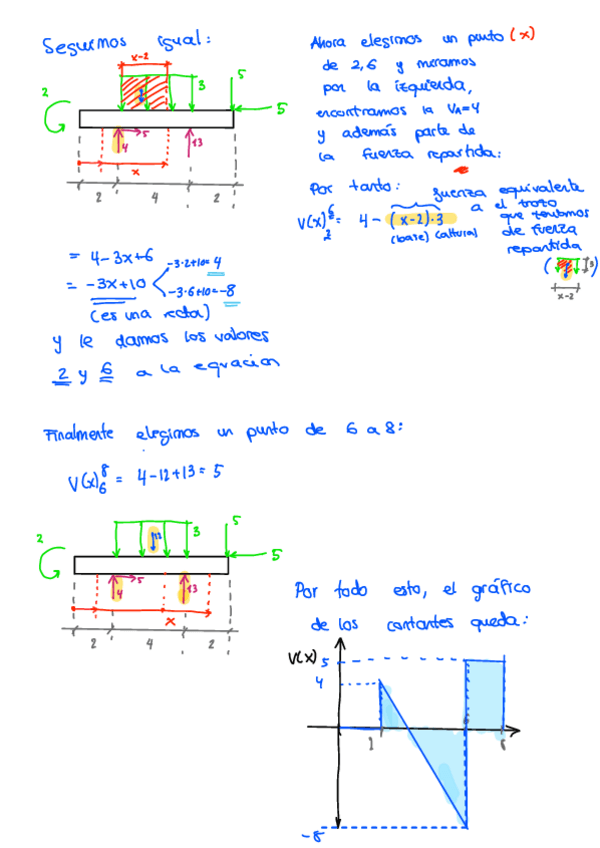 Seguimos igual:
x-2
2
3
5
5
4
5
13
x
2
4
2
Ahora elegimos un punto (x)
de 2,6 y miramos
por la izquierda,
encontramos la VA=4
y además parte de
la fuerza repartida:
Por tanto:
fuerza equivalente
a el trozo
que tenemos
de fuerza
repartida
V(x)⁶₂= 4-(x-2)·3
(base) (altura)
3
x-2
= 4-3x+6
= -3x+10
-3·2+10=4
-3·6+10=-8
(es una recta)
y le damos los valores
2 y 6 a la equacion
Finalmente elegimos un punto de 6 a 8:
V(x)⁸₆= 4-12+13=5
2
12
3
5
5
4
5
13
x
2
4
2
Por todo esto, el gráfico
de los cortantes queda:
V(x)
5
4
2
-8